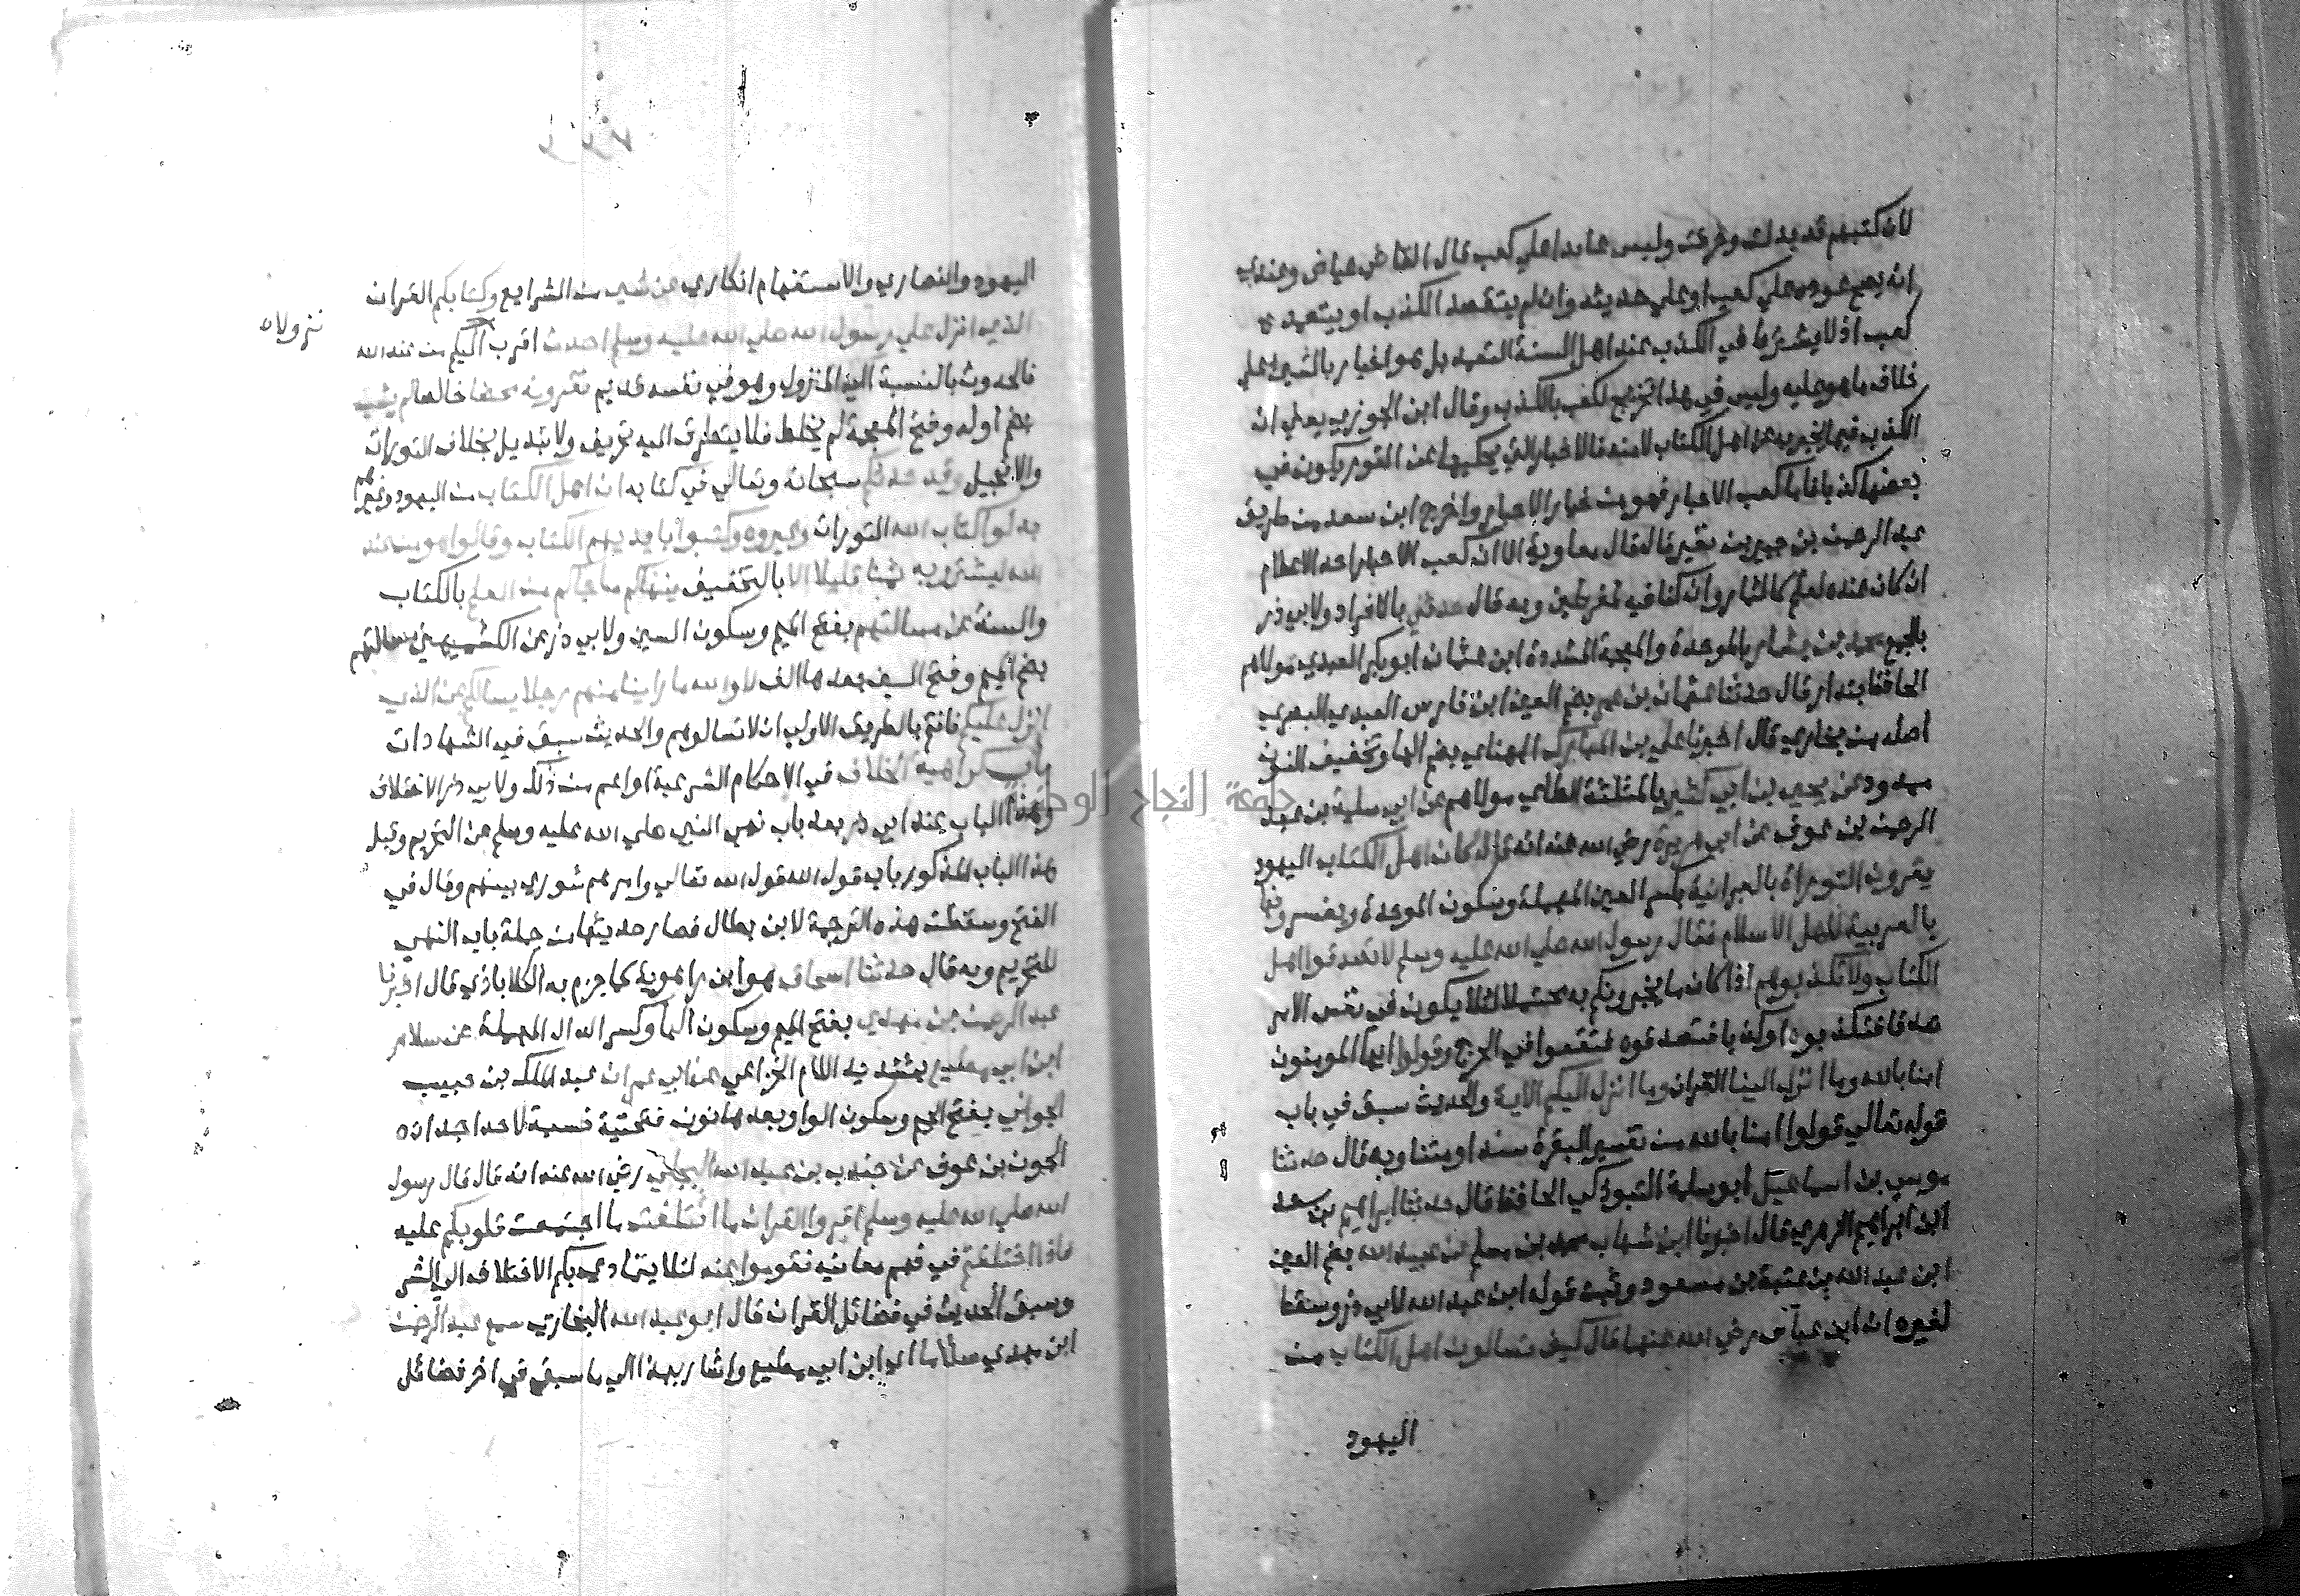 لان كتبهم قد بدلت وحرفت وليس عايدا علي كعب قال القاضي عياض وعندي
انه يصح عوده علي كعب او علي حديثه وان لم يتقصد الكذب او يتعمده
كعب اذ لا يشترط في الكذب عند اهل السنة التعمد بل هو اخبار بالشيء علي
خلاف ما هو عليه وليس في هذا تجريح لكعب بالكذب وقال ابن الجوزي يعني ان
الكذب فيما يخبر به عن اهل الكتاب لا منه فالاخبار التي يحكيها عن القوم يكون في
بعضها كذب فاما كعب الاحبار فهو من خيار الاحبار واخرج ابن سعد من طريق
عبد الرحمن بن جبير بن نفير قال قال معاوية الا ان كعب الاحبار احد الاعلام
ان كان عنده لعلم كالثمار وان كنا فيه لمفرطين وبه قال حدثني بالافراد ولابي ذر
بالجمع محمد بن بشار بالموحدة والمعجمة المشددة ابن عثمان ابو بكر العبدي مولاهم
الحافظ بندار قال حدثنا عثمان بن عمر بضم العين ابن فارس العبدي البصري
اصله من بخاري قال اخبرنا علي بن المبارك الهناي بضم الها وتخفيف النون
ممدود عن يحيي بن ابي كثير بالمثلثة الطاي مولاهم عن ابي سلمة بن عبد
الرحمن بن عوف عن ابي هريرة رضي الله عنه انه قال كان اهل الكتاب اليهود
يقرون التوراة بالعبرانية بكسر العين المهملة وسكون الموحدة ويفسرونها
بالعربية لاهل الاسلام فقال رسول الله صلي الله عليه وسلم لا تصدقوا اهل
الكتاب ولا تكذبوهم اذا كان ما يخبرونكم به محتملا لئلا يكون في نفس الامر
صدقا فتكذبوه او كذبا فتصدقوه فتقعوا في الحرج وقولوا ايها المومنون
امنا بالله وما انزل الينا القران وما انزل اليكم الاية والحديث سبق في باب
قوله تعالي قولوا امنا بالله من تفسير البقرة سندا ومتنا وبه قال حدثنا
موسي بن اسماعيل ابو سلمة التبوذكي الحافظ قال حدثنا ابراهيم بن سعد
ابن ابراهيم الزهري قال اخبرنا ابن شهاب محمد بن مسلم عن عبيد الله بضم العين
ابن عبد الله بن عتبة بن مسعود وثبت قوله ابن عبد الله لابي ذر وسقط
لغيره ان ابن عباس رضي الله عنهما قال كيف تسالون اهل الكتاب من
اليهود
اليهود والنصاري والاستفهام انكاري عن شي من الشرايع وكتابكم القران
الذي انزل علي رسول الله صلي الله عليه وسلم احدث اقرب اليكم من عند الله
نزولا
فالحدوث بالنسبة الي المنزول وهو في نفسه قديم تقرونه محضا خالصا لم يشب
بضم اوله وفتح المعجمة لم يخلط فلا يتطرق اليه تحريف ولا تبديل بخلاف التورات
والانجيل وقد حدثكم سبحانه وتعالي في كتابه ان اهل الكتاب من اليهود وغيرهم
بدلوا كتاب الله التورات وغيروه وكتبوا بايديهم الكتاب وقالوا هو من عند
الله ليشتروا به ثمنا قليلا الا بالتخفيف ينهاكم ما جاكم من العلم بالكتاب
والسنة عن مسالتهم بفتح الميم وسكون السين ولابي ذر عن الكشميهني مسالتهم
بضم الميم وفتح السين بعدها الف لا والله ما راينا منهم رجلا يسالكم عن الذي
انزل عليكم فانتم بالطريق الاولي ان لا تسالوهم والحديث سبق في الشهادات
باب كراهية الخلاف في الاحكام الشرعية او اعم من ذلك ولابي ذر الاختلاف
وهذا الباب عند ابي ذر بعد باب نهي النبي صلي الله عليه وسلم عن التحريم وقبل
هذا الباب المذكور باب قول الله قول الله تعالي وامرهم شوري بينهم وقال في
الفتح وسقطت هذه الترجمة لابن بطال فصار حديثها من جملة باب النهي
للتحريم وبه قال حدثنا اسحاق هو ابن راهوية كما جزم به الكلاباذي قال اخبرنا
عبد الرحمن بن مهدي بفتح الميم وسكون الها وكسر الدال المهملة عن سلام
ابن ابي مطيع بتشديد اللام الخزاعي عن ابي عمران عبد الملك بن حبيب
الجوني بفتح الجيم وسكون الواو بعدها نون فتحتية نسبة لاحد اجداده
الجون بن عوف عن جندب بن عبد الله البجلي رضي الله عنه انه قال قال رسول
الله صلي الله عليه وسلم اقروا القران ما ائتلفت ما اجتمعت قلوبكم عليه
فاذا اختلفتم في فهم معانيه فقوموا عنه لئلا يتمادي بكم الاختلاف الي الشر
وسبق الحديث في فضائل القران قال ابو عبد الله البخاري سمع عبد الرحمن
ابن مهدي سلاما اي ابن ابي مطيع واشار بهذا الي ما سبق في اخر فضائل
جامعة النجاح الوطنية